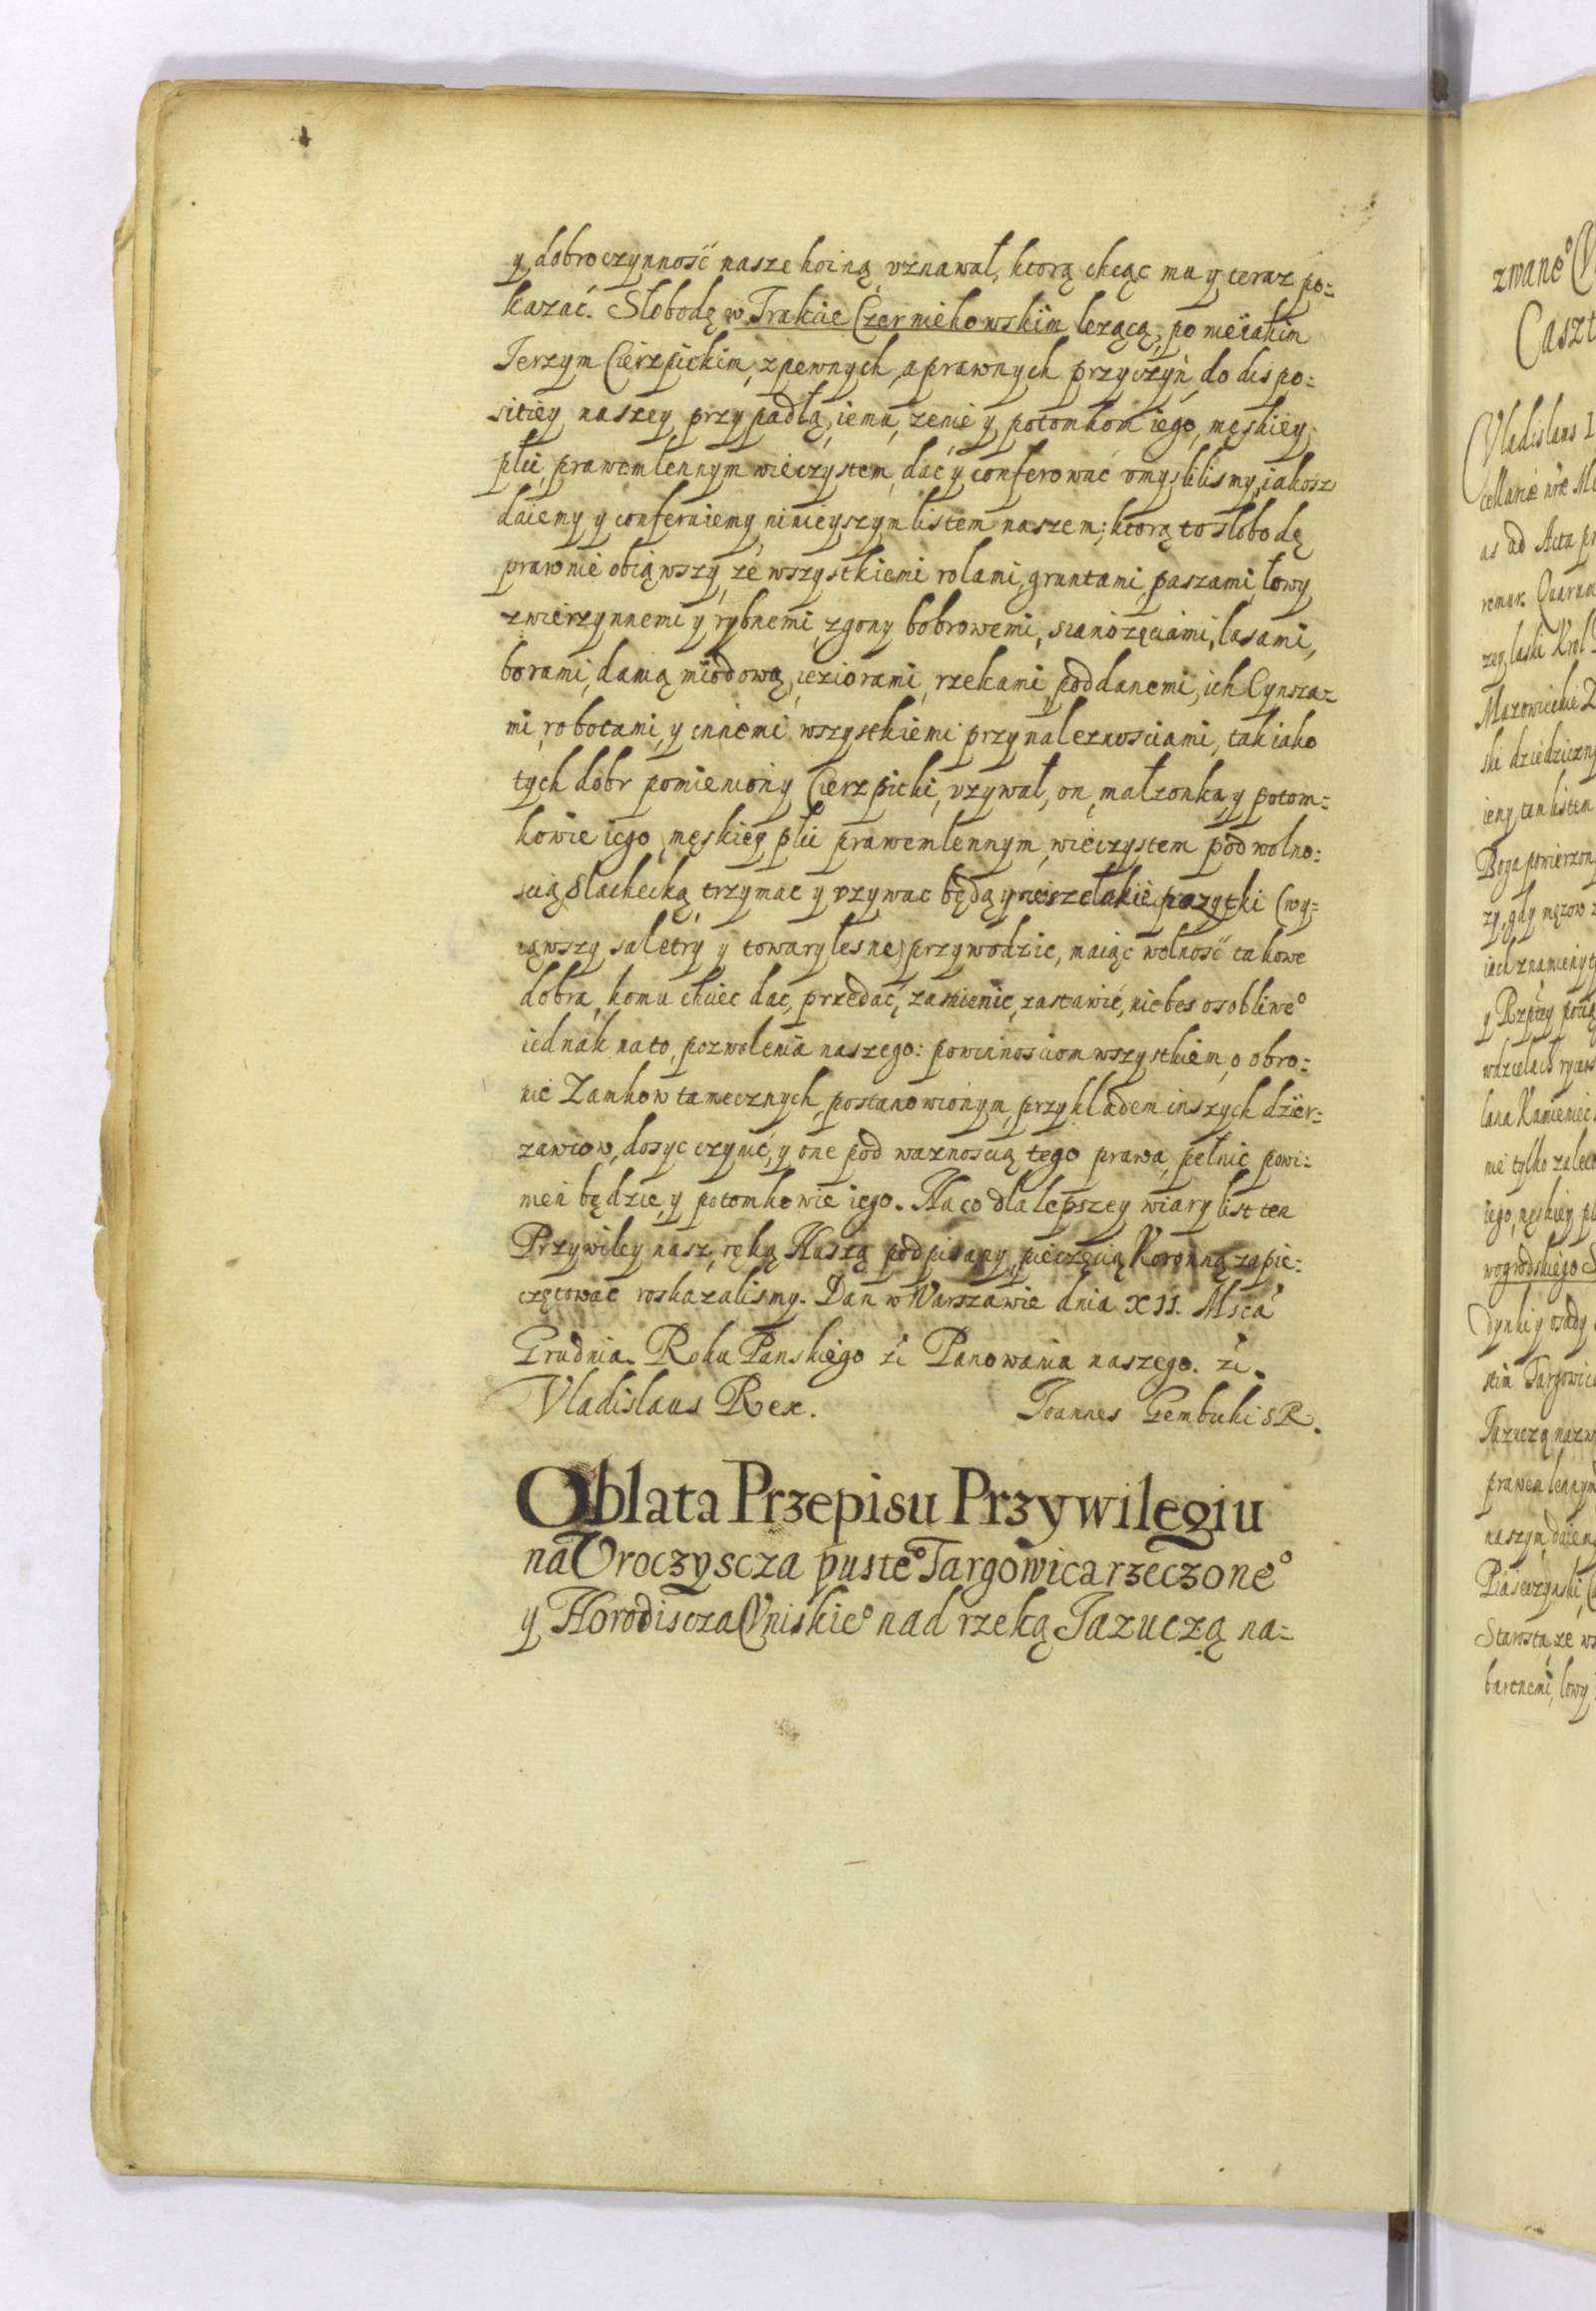 y dobroczynność nasze hoiną vznawał, ktorą chcąc mu y teraz po=
kazać. Słobodę w Trakcie Czerniehowskim lezącą, po nieiakim
Jerzym Cierzpickim, z pewnych, a prawnych przyczyn do dispo=
sitiey naszey przypadłą, iemu, zenie y potomkom iego, męskiey
płci, prawem lennym wieczystem, dać y conferować vmyslilismy, iakosz
daiemy y conferuiemy ninieyszym listem naszem; ktorą to słobodę
prawnie obiąwszy, ze wszystkiemi rolami, gruntami, paszami, łowy
zwierzynnemi y rybnemi, zgony bobrowemi, sianozęciami, lasami,
borami, danią miodową, ieziorami, rzekami, poddanemi, ich Cynsza=
mi, robotami, y innemi wszystkiemi przynaleznosciami, tak iako
tych dobr pomieniony Cierzpicki, vzywał, on, małzonka y potom=
kowie iego męskiey płci prawem lennym, wieczystem pod wolno=
scią Slachecką trzymac y vzywac będą y wszelakie pozytki (wy=
iąwszy saletry y towary lesne) przywodzic, maiąc wolność takowe
dobra, komu chciec dac, przedać, zamienic, zastawić, nie bes osobliwe°
iednak na to, pozwolenia naszego: powinnosciom wszystkiem, o obro=
nie Zamkow tamecznych, postanowionym, przykładem inszych dzier=
zawcow, dosyc czynić, y one pod waznoscią tego prawa, pełnic powi=
nien będzie, y potomkowie iego. Na co dla lepszey wiary list ten
Przywiley nasz, ręką Naszą podpisany, pieczęcią Koronną zapie=
czętować roskazalismy. Dan w Warszawie dnia XII. Msca
Grudnia. Roku Panskiego zi Panowania naszego. zi.
Vladislaus Rex. Joannes Gembicki SR.
Oblata Przepisu Przywilegiu
na Vroczyscza puste° Targowica rzeczone°
y Horodiscza Vniskie° nad rzeką Jazuczą na=
zwane°
Caszt
Vladislaus
cellariæ nrē
as ad Acta
remur.
Krol
Mazowieckie
ski dziedziczny
iemy tem listem
Boga powierzon
zy, gdy męzow
y Rzptey
lana Kamieniec
nie tylko zalec
iego, męskiey pł
wogrodskiego S
dynki y osady
stim Targowica
Jazuczą nazw
prawem lennym
naszym daiem
Piaseczynski
Starosta, ze ws
bartnemi, łowy